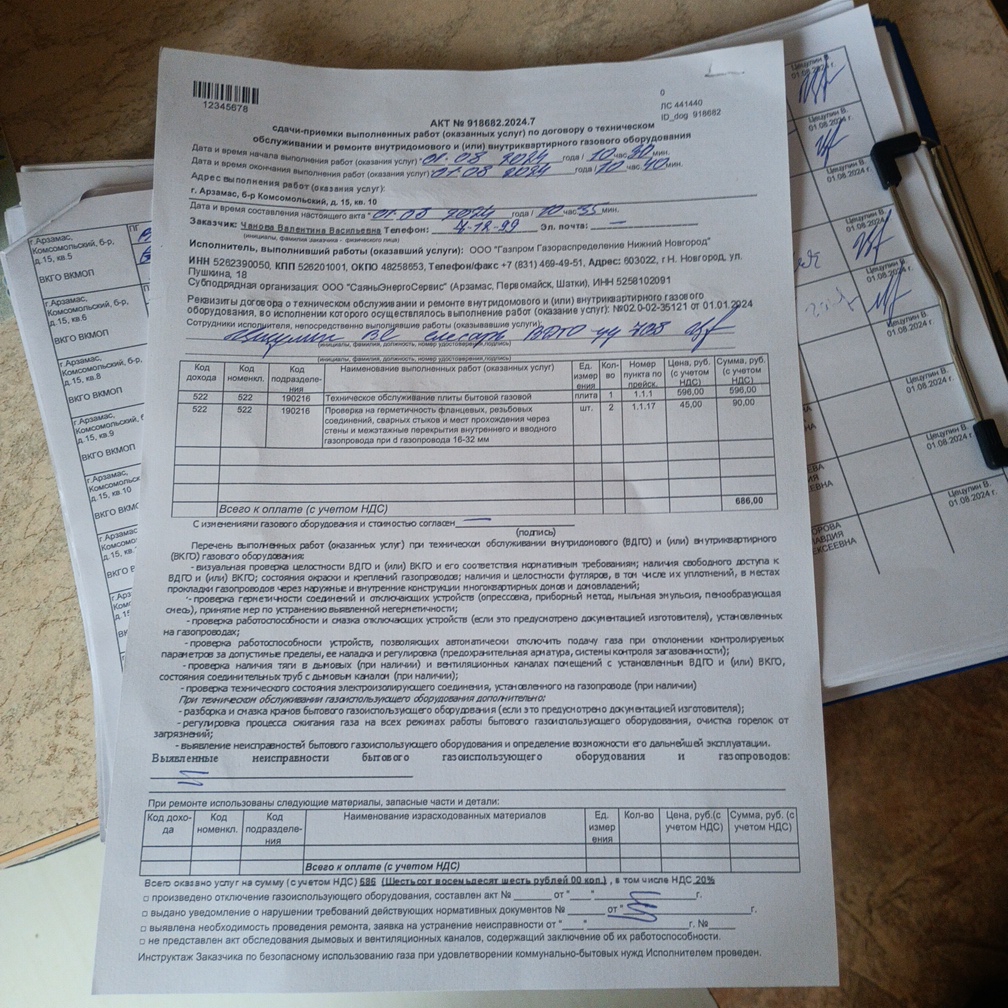 12345678
0
ЛС 441440
ID_dog 918682
АКТ № 918682.2024.7
сдачи-приемки выполненных работ (оказанных услуг) по договору о техническом
обслуживании и ремонте внутридомового и (или) внутриквартирного газового оборудования
Дата и время начала выполнения работ (оказания услуг) * 01.08 2024 года / 10 час 30 мин.
Дата и время окончания выполнения работ (оказания услуг) * 01.08 2024 года / 10 час 40 мин.
Адрес выполнения работ (оказания услуг):
г. Арзамас, б-р Комсомольский, д. 15, кв. 10
Дата и время составления настоящего акта * 01.08 2024 года / 10 час 35 мин.
Заказчик: Чанова Валентина Васильевна Телефон: 4-18-99 Эл. почта:
(инициалы, фамилия заказчика - физического лица)
Исполнитель, выполнивший работы (оказавший услуги): ООО "Газпром Газораспределение Нижний Новгород"
ИНН 5262390050, КПП 526201001, ОКПО 48258653, Телефон/факс +7 (831) 469-49-51, Адрес: 603022, г Н. Новгород, ул.
Пушкина, 18
Субподрядная организация: ООО "СаяныЭнергоСервис" (Арзамас, Первомайск, Шатки), ИНН 5258102091
Реквизиты договора о техническом обслуживании и ремонте внутридомового и (или) внутриквартирного газового
оборудования, во исполнении которого осуществлялось выполнение работ (оказание услуг): №02.0-02-35121 от 01.01.2024
Сотрудники исполнителя, непосредственно выполнявшие работы (оказывавшие услуги):
Цецулин В.С слесарь ВДГО уд 738
(инициалы, фамилия, должность, номер удостоверения, подпись)
(инициалы, фамилия, должность, номер удостоверения, подпись)
Код дохода Код номенкл. Код подразделе-ния Наименование выполненных работ (оказанных услуг) Ед. измер ения Кол-во Номер пункта по прейск. Цена, руб. (с учетом НДС) Сумма, руб. (с учетом НДС)
522 522 190216 Техническое обслуживание плиты бытовой газовой плита 1 1.1.1 596,00 596,00
522 522 190216 Проверка на герметичность фланцевых, резьбовых шт. 2 1.1.17 45,00 90,00
соединений, сварных стыков и мест прохождения через
стены и межэтажные перекрытия внутреннего и вводного
газопровода при d газопровода 16-32 мм
Всего к оплате (с учетом НДС) 686,00
С изменениями газового оборудования и стоимостью согласен
(подпись)
Перечень выполненных работ (оказанных услуг) при техническом обслуживании внутридомового (ВДГО) и (или) внутриквартирного
(ВКГО) газового оборудования:
- визуальная проверка целостности ВДГО и (или) ВКГО и его соответствия нормативным требованиям; наличия свободного доступа к
ВДГО и (или) ВКГО; состояния окраски и креплений газопроводов; наличия и целостности футляров, в том числе их уплотнений, в местах
прокладки газопроводов через наружные и внутренние конструкции многоквартирных домов и домовладений;
- проверка герметичности соединений и отключающих устройств (опрессовка, приборный метод, мыльная эмульсия, пенообразующая
смесь), принятие мер по устранению выявленной негерметичности;
- проверка работоспособности и смазка отключающих устройств (если это предусмотрено документацией изготовителя), установленных
на газопроводах;
- проверка работоспособности устройств, позволяющих автоматически отключить подачу газа при отклонении контролируемых
параметров за допустимые пределы, ее наладка и регулировка (предохранительная арматура, системы контроля загазованности);
- проверка наличия тяги в дымовых (при наличии) и вентиляционных каналах помещений с установленным ВДГО и (или) ВКГО,
состояния соединительных труб с дымовым каналом (при наличии);
- проверка технического состояния электроизолирующего соединения, установленного на газопроводе (при наличии)
При техническом обслуживании газоиспользующего оборудования дополнительно:
- разборка и смазка кранов бытового газоиспользующего оборудования (если это предусмотрено документацией изготовителя);
- регулировка процесса сжигания газа на всех режимах работы бытового газоиспользующего оборудования, очистка горелок от
загрязнений;
- выявление неисправностей бытового газоиспользующего оборудования и определение возможности его дальнейшей эксплуатации.
Выявленные неисправности бытового газоиспользующего оборудования и газопроводов:
При ремонте использованы следующие материалы, запасные части и детали:
Код дохо-да Код номенкл. Код подразделе-ния Наименование израсходованных материалов Ед. измер ения Кол-во Цена, руб.(с учетом НДС) Сумма, руб. (с учетом НДС)
Всего к оплате (с учетом НДС)
Всего оказано услуг на сумму (с учетом НДС) 686 (Шестьсот восемьдесят шесть рублей 00 коп.) , в том числе НДС 20%
□ произведено отключение газоиспользующего оборудования, составлен акт № от "   " г.
□ выдано уведомление о нарушении требований действующих нормативных документов № от " г.
□ выявлена необходимость проведения ремонта, заявка на устранение неисправности от "   " г. №
□ не представлен акт обследования дымовых и вентиляционных каналов, содержащий заключение об их работоспособности.
Инструктаж Заказчика по безопасному использованию газа при удовлетворении коммунально-бытовых нужд Исполнителем проведен.
г.Арзамас,
Комсомольский, б-р,
д. 15, кв.5
ВКГО ВКМОП
г.Арзамас,
Комсомольский, б-р,
д. 15, кв.6
ВКГО ВКМОП
г.Арзамас,
Комсомольский, б-р,
д. 15, кв.8
ВКГО ВКМОП
г.Арзамас,
Комсомольский,
д. 15, кв.9
ВКГО ВКМОП
г.Арзамас,
Комсомольс
д. 15, кв.10
ВКГО ВКМО
Цецулин В.
01.08.2024 г.
Цецулин В.
01.08.2024 г.
Цецулин В.
01.08.2024 г.
Цецулин В.
01.08.2024 г.
Цецулин В.
01.08.2024 г.
Цецулин В.
01.08.2024 г.
Цецулин В.
01.08.2024 г.